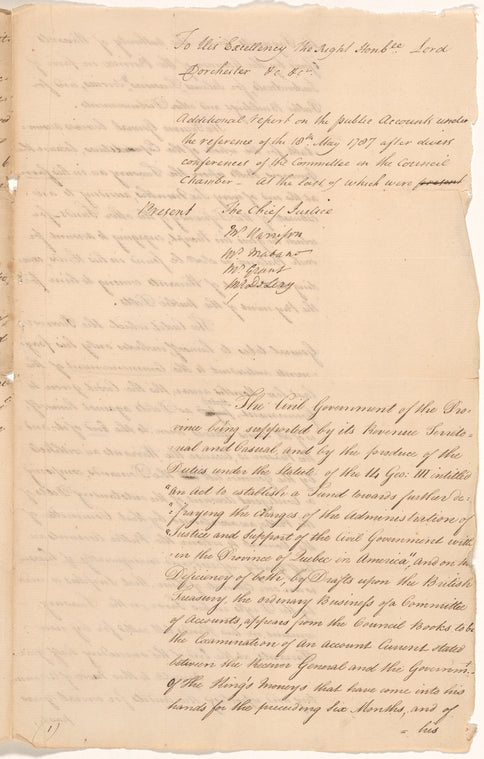 To His Excellency The Right Honble. Lord
Dorchester &c. &c.
Additional report on the public Accounts under
the reference of the 18th. May 1787 after divers
conferences of the Committee in the Council
Chamber – At the last of which were present
Present The Chief Justice
Mr Harrison
Mr Mabane
Mr Grant
Mr De Lery
The Civil Government of the Pro-
vince being supported by its Revenue Territo-
rial and Casual, and by the produce of the
Duties under the Statute of the 14 Geo: III intitled
"an act to establish a Fund towards further de-
"fraying the Charges of the Administration of
"Justice and Support of the Civil Government with-
"in the Province of Quebec in America", and on the
Deficiency of both, by Drafts upon the British
Treasury, the ordinary Business of a Committee
of Accounts, appears from the Council Books, to be
the Examination of An Account Current stated
between the Receiver General and the Governmt.
of The King's Moneys that have come into his
hands for the preceeding Six Months, and of
his
(1)